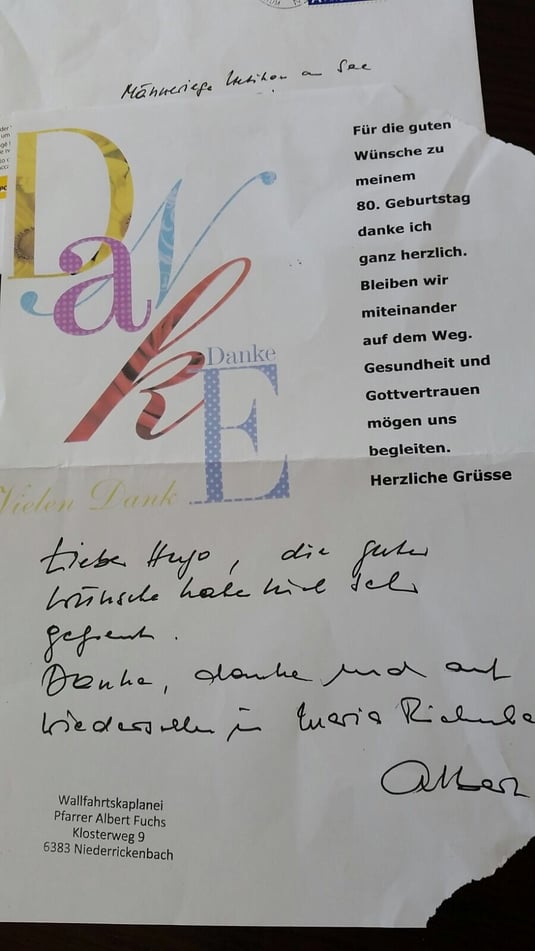 Männerriege Uetikon a See
DaNkE
Danke
Vielen Dank
Für die guten
Wünsche zu
meinem
80. Geburtstag
danke ich
ganz herzlich.
Bleiben wir
miteinander
auf dem Weg.
Gesundheit und
Gottvertrauen
mögen uns
begleiten.
Herzliche Grüsse
Lieber Hugo, die guten
Wünsche haben mich sehr
gefreut.
Danke, danke und auf
Wiedersehen in Maria Rickenba
Albert
Wallfahrtskaplanei
Pfarrer Albert Fuchs
Klosterweg 9
6383 Niederrickenbach